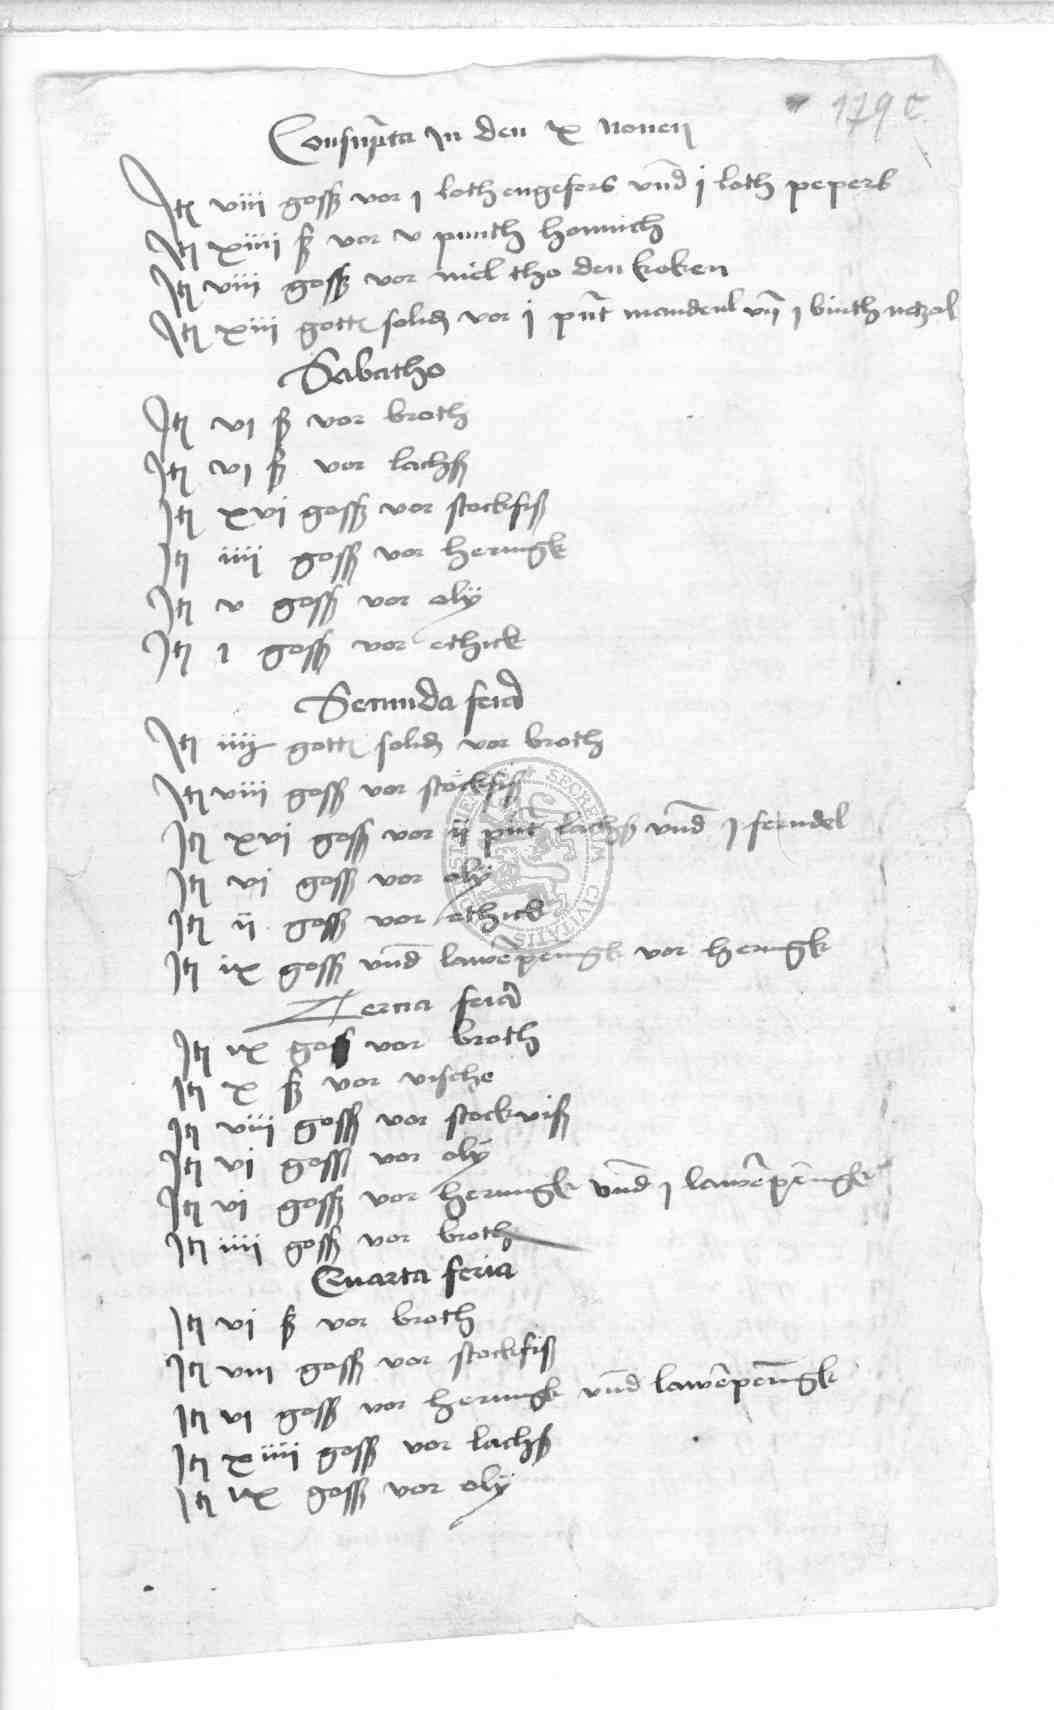 179 c
Consumpta in den x nonen
Itē viii gosß vor i loth engefers vnd i loth pepers
Itē xiiii ß vor v punth honnich
Itē viii gosß vor mel tho den koken
Itē xiii gott solid vor i punt mandeul vn i
Sabatho
Itē vi ß vor broth
Itē vi ß vor lachß
Itē xvi gosß vor stockfiß
Itē iiii gosß vor heringk
Itē v gosß vor olÿ
Itē i gosß vor ethick
Secunda feria
Itē iiij gott solid vor broth
Itē viii gosß vor stockfiß
Itē xvi gosß vor ii punt lachß vnd i ferndel
Itē vi gosß vor olÿ
Itē ii gosß vor ethick
Itē ix gosß vnd lawēpenigk vor heringk
Tercia feria
Itē ix gosß vor broth
Itē x ß vor vische
Itē viii gosß vor stockviß
Itē vi gosß vor olÿ
Itē vi gosß vor heringk vnd i lawēpēnigk
Itē iiii gosß vor broth
Quarta feria
Itē vi ß vor broth
Itē viii gosß vor stockfiß
Itē vi gosß vor heringk vnd lawēpenigk
Itē xiiii gosß vor lachß
Itē ix gosß vor olÿ
SECRETUM CIVITATIS